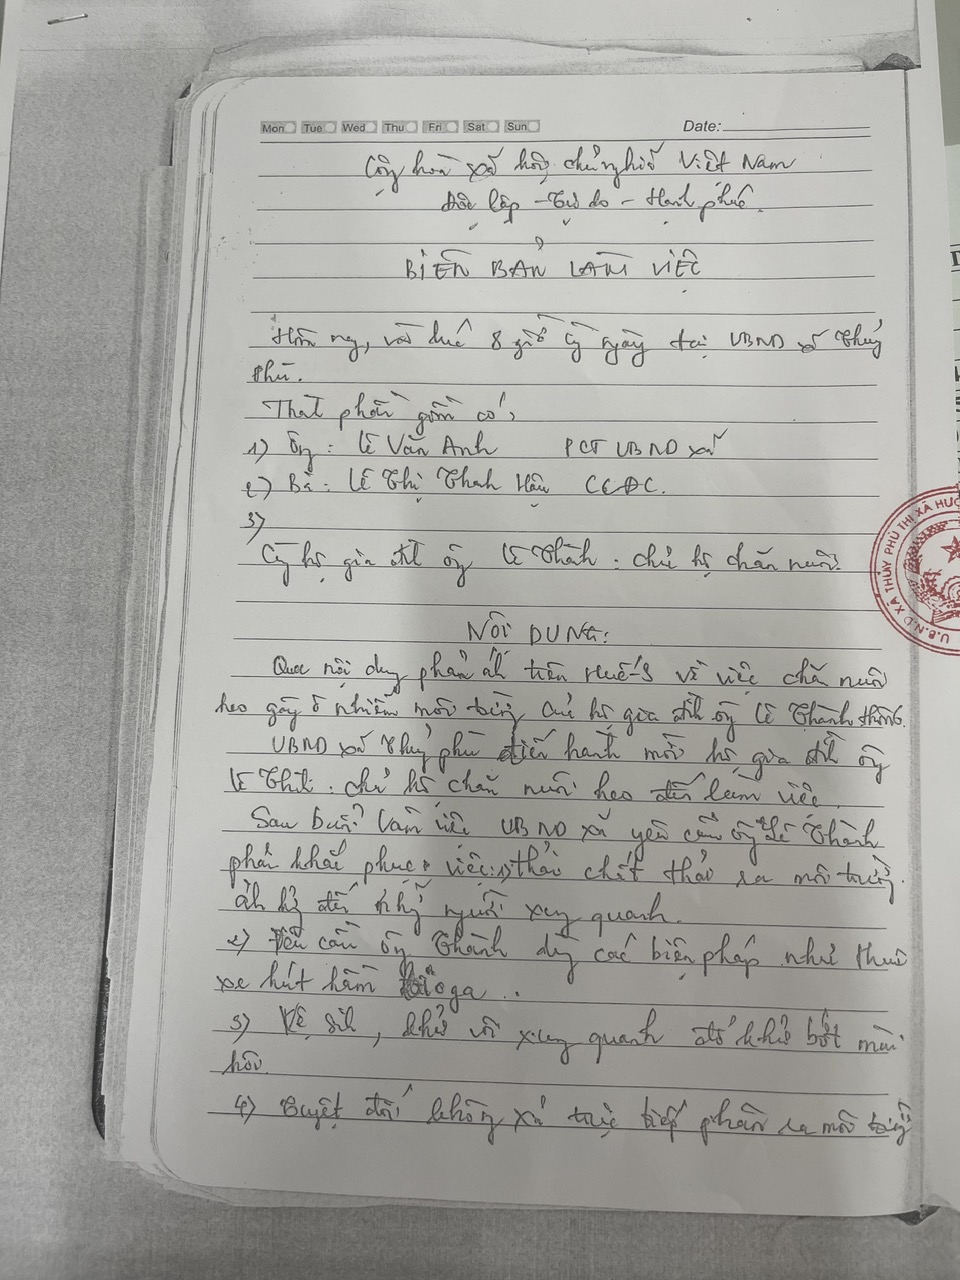 Mon Tue Wed Thu Fri Sat Sun Date:
Cộng hoà xã hội chủ nghĩa Việt Nam
Độc lập - Tự do - Hạnh phúc.
BIÊN BẢN LÀM VIỆC
Hôm nay, vào lúc 8 giờ cùng ngày tại UBND xã Thuỷ
Phù.
Thành phần gồm có:
1) Ông: Lê Văn Anh PCT UBND xã
2) Bà: Lê Thị Thanh Hậu CCĐC.
3)
Cùng hộ gia đình ông Lê Thành: chủ hộ chăn nuôi.
NỘI DUNG:
Qua nội dung phản ánh trên Huế-S về việc chăn nuôi
heo gây ô nhiễm môi trường của hộ gia đình ông Lê Thành thôn
UBND xã Thuỷ Phù tiến hành mời hộ gia đình ông
Lê Thành: chủ hộ chăn nuôi heo đến làm việc.
Sau buổi làm việc UBND xã yêu cầu ông Lê Thành
phải khắc phục việc: 1) thải chất thải ra môi trường
ảnh hưởng đến những người xung quanh.
2) Yêu cầu ông Thành dùng các biện pháp như thuê
xe hút hầm Bioga..
3) Vệ sinh, khử vôi xung quanh để khử bớt mùi
hôi.
4) Tuyệt đối không xả trực tiếp phân ra môi trường
U.B.N.D XÃ THỦY PHÙ THỊ XÃ HƯƠ